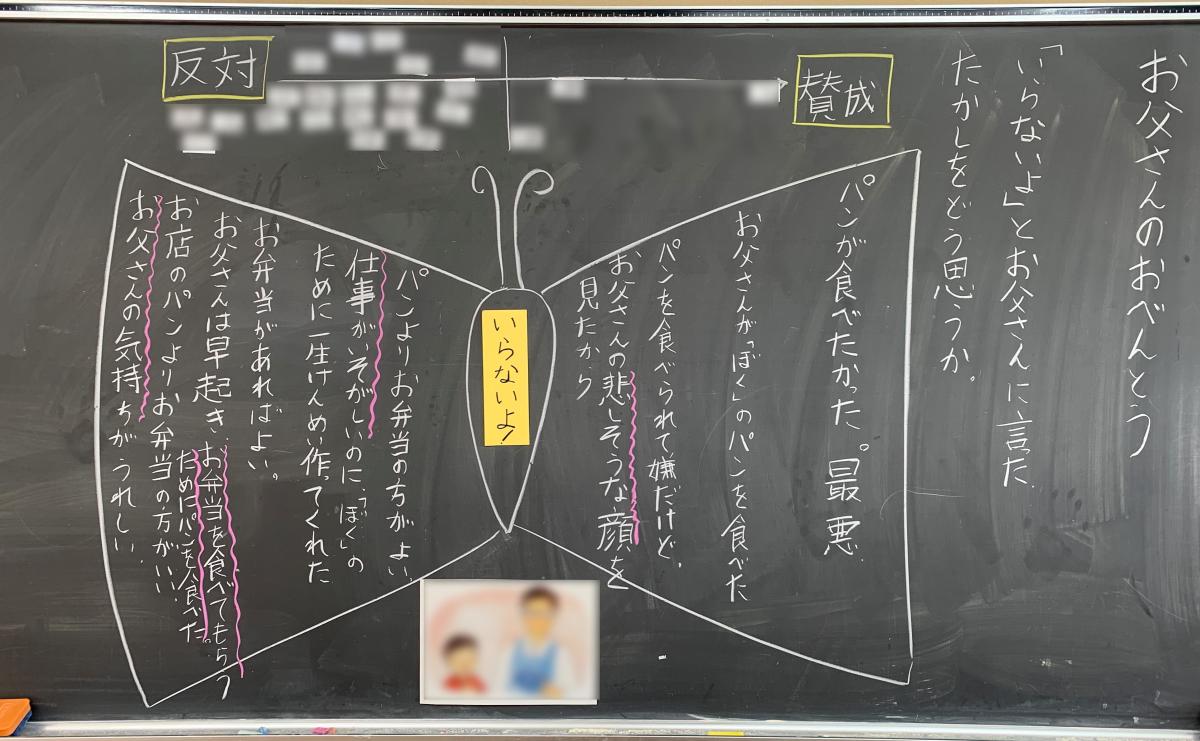 お父さんのおべんとう
「いらないよ」とお父さんに言った
たかしをどう思うか。
賛成
反対
パンが食べたかった。最悪
お父さんが「ぼく」のパンを食べた
パンを食べられて嫌だけど、
お父さんの悲しそうな顔を
見たから
いらないよ!
パンよりお弁当の方がよい
仕事がいそがしいのに、「ぼく」の
ために一生けんめい作ってくれた
お弁当があればよい。
お父さんは早起き、お弁当を食べてもらう
ためにパンを食べた。
お店のパンよりお弁当の方がいい
お父さんの気持ちがうれしい